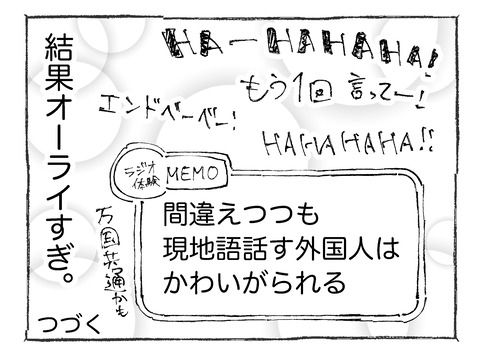 HA-HAHAHA!
もう1回 言ってー!
エンドベーベー!
HAHAHAHA!!
結果オーライすぎ。
ラジオ
体験
MEMO
間違えつつも
現地語話す外国人は
かわいがられる
万国共通かも
つづく